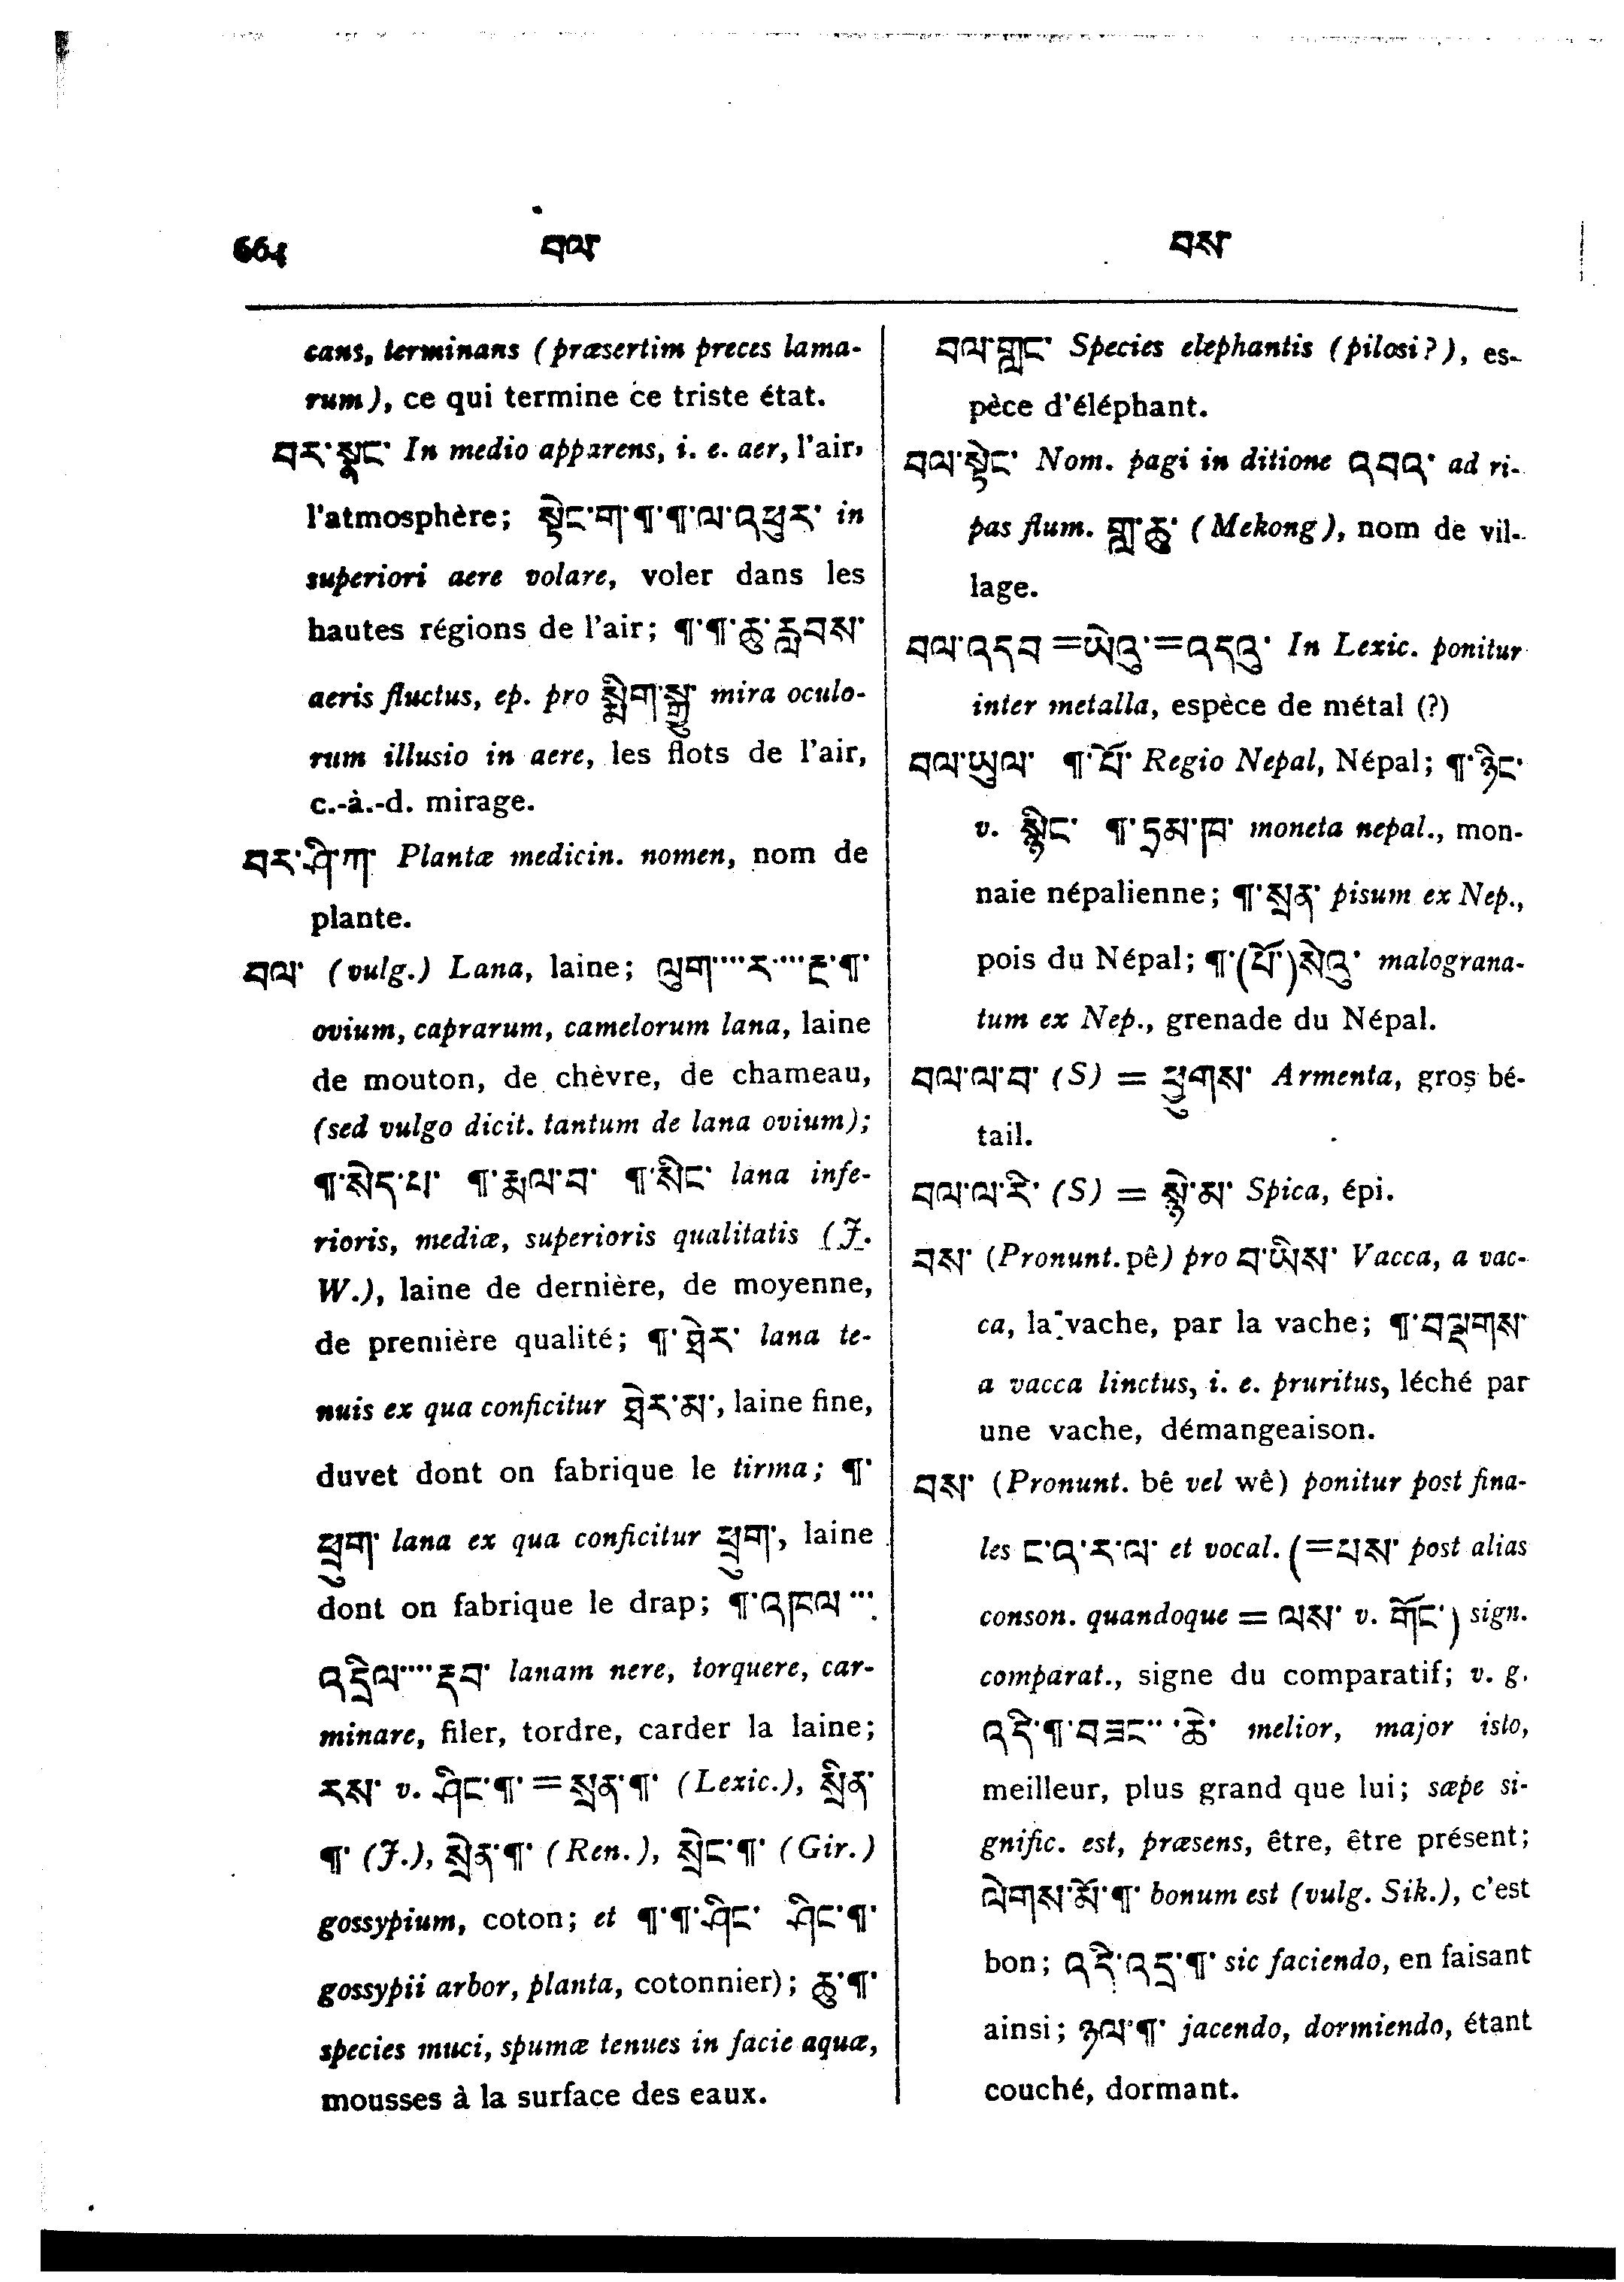 664 བལ་ བས་
cans, terminans (præsertim preces lama-
rum), ce qui termine ce triste état.
བར་སྣང་ In medio apparens, i. e. aer, l'air,
l'atmosphère; སྟེང་ག་¶་¶་ལ་འཕུར་ in
superiori aere volare, voler dans les
hautes régions de l'air; ¶་¶་ཆུ་རླབས་
aeris fluctus, ep. pro སྨིག་སྒྱུ་ mira oculo-
rum illusio in aere, les flots de l'air,
c.-à.-d. mirage.
བར་ཤི་ཀ་ Plantæ medicin. nomen, nom de
plante.
བལ་ (vulg.) Lana, laine; ལུག་...ར་...རྔ་¶་
ovium, caprarum, camelorum lana, laine
de mouton, de chèvre, de chameau,
(sed vulgo dicit. tantum de lana ovium);
¶་སེད་པ་ ¶་རྨལ་བ་ ¶་སིང་ lana infe-
rioris, mediæ, superioris qualitatis (J.
W.), laine de dernière, de moyenne,
de première qualité; ¶་ཐེར་ lana te-
nuis ex qua conficitur ཐེར་མ་, laine fine,
duvet dont on fabrique le tirma; ¶་
ཕྲུག་ lana ex qua conficitur ཕྲུག་, laine
dont on fabrique le drap; ¶་འཁལ་...
འདྲིལ་...རྡབ་ lanam nere, torquere, car-
minare, filer, tordre, carder la laine;
རས་ v. ཤིང་¶་=སྲན་¶་ (Lexic.), སྲིན་
¶་ (J.), སྲེན་¶་ (Ren.), སྲེང་¶་ (Gir.)
gossypium, coton; et ¶་¶་ཤིང་ ཤིང་¶་
gossypii arbor, planta, cotonnier); ཆུ་¶་
species muci, spumæ tenues in facie aquæ,
mousses à la surface des eaux.
བལ་གླང་ Species elephantis (pilosi?), es-
pèce d'éléphant.
བལ་སྟེང་ Nom. pagi in ditione འབའ་ ad ri-
pas flum. ཟླ་ཆུ་ (Mekong), nom de vil-
lage.
བལ་འདབ=ཡེའུ་=འདའུ་ In Lexic. ponitur
inter metalla, espèce de métal (?)
བལ་ཡུལ་ ¶་པོ་ Regio Nepal, Népal; ¶་ཉིང་
v. སྙིང་ ¶་ཏྲམ་ཁ་ moneta nepal., mon-
naie népalienne; ¶་སྲན་ pisum ex Nep.,
pois du Népal; ¶་(པོ་)སེའུ་ malograna-
tum ex Nep., grenade du Népal.
བལ་ལ་བ་ (S) = ཕྱུགས་ Armenta, gros bé-
tail.
བལ་ལ་རི་ (S) = སྙེ་མ་ Spica, épi.
བས་ (Pronunt. pê) pro བ་ཡིས་ Vacca, a vac-
ca, la vache, par la vache; ¶་བལྡགས་
a vacca linctus, i. e. pruritus, léché par
une vache, démangeaison.
བས་ (Pronunt. bê vel wê) ponitur post fina-
les ང་འ་ར་ལ་ et vocal. (=པས་ post alias
conson. quandoque = ལས་ v. གོང་) sign.
comparat., signe du comparatif; v. g.
འདི་¶་བཟང་...ཆེ་ melior, major isto,
meilleur, plus grand que lui; sæpe si-
gnific. est, præsens, être, être présent;
ལེགས་མོ་¶་ bonum est (vulg. Sik.), c'est
bon; འདི་འདྲ་¶་ sic faciendo, en faisant
ainsi; ཉལ་¶་ jacendo, dormiendo, étant
couché, dormant.